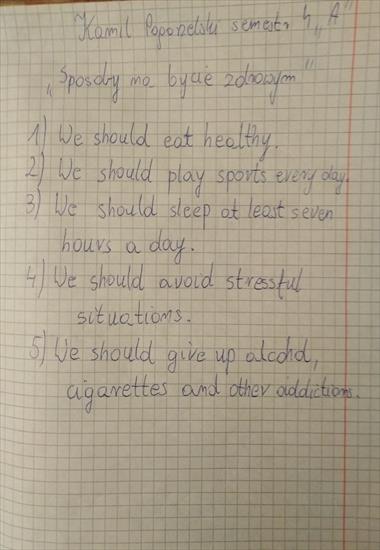 Kamil Poponelski semestr 4 "A"
"Sposoby na bycie zdrowym"
1) We should eat healthy.
2) We should play sports every day.
3) We should sleep at least seven
hours a day.
4) We should avoid stressful
situations.
5) We should give up alcohol,
cigarettes and other addictions.